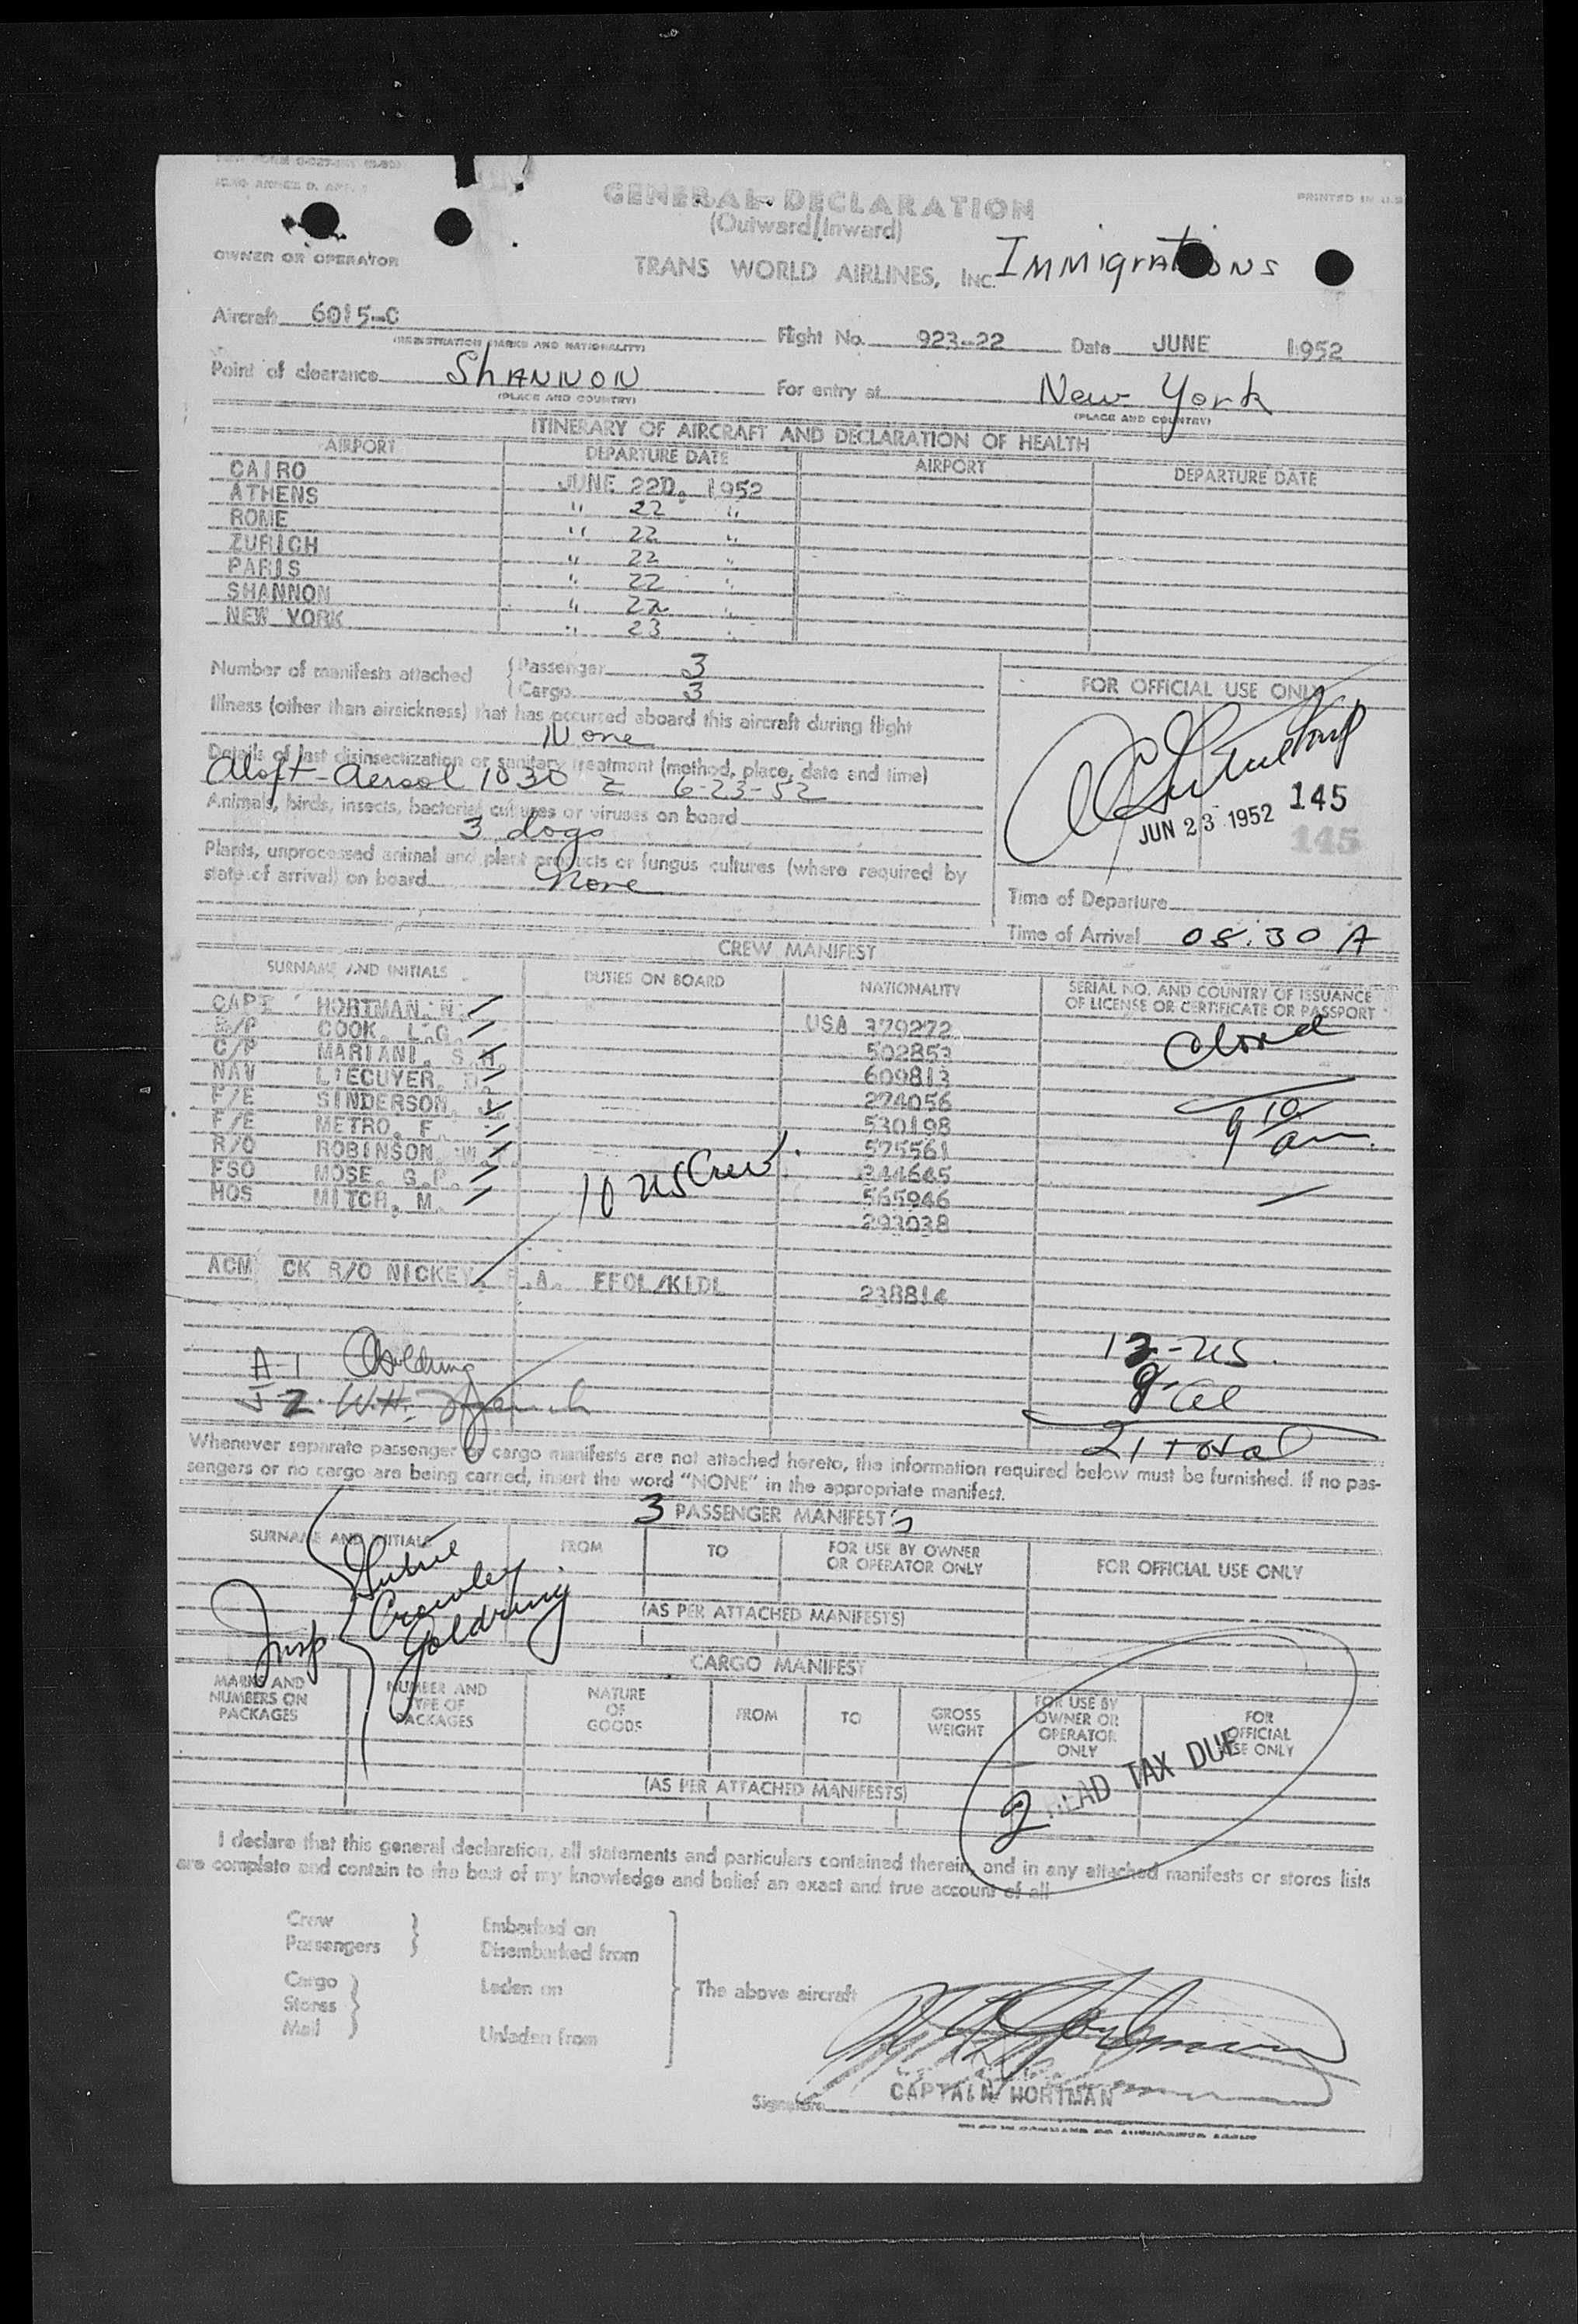 GENERAL DECLARATION
(Outward/Inward)
PRINTED IN U.S
OWNER OR OPERATOR
TRANS WORLD AIRLINES, INC.
Immigrations
Aircraft 6015-C
(REGISTRATION MARKS AND NATIONALITY)
Flight No. 923-22 Date JUNE 1952
Point of clearance ShANNON
(PLACE AND COUNTRY)
For entry at New York
(PLACE AND COUNTRY)
ITINERARY OF AIRCRAFT AND DECLARATION OF HEALTH
AIRPORT DEPARTURE DATE AIRPORT DEPARTURE DATE
CAIRO JUNE 22D, 1952
ATHENS " 22 "
ROME " 22 "
ZURICH " 22 "
PARIS " 22 "
SHANNON " 22 "
NEW YORK " 23 "
Number of manifests attached { Passenger 3
( Cargo 3
Illness (other than airsickness) that has occurred aboard this aircraft during flight
None
Details of last disinsectization or sanitary treatment (method, place, date and time)
Aloft - Aerosol 1030 Z 6-23-52
Animals, birds, insects, bacterial cultures or viruses on board
3 dogs
Plants, unprocessed animal and plant products or fungus cultures (where required by
state of arrival) on board None
FOR OFFICIAL USE ONLY
JUN 23 1952 145
145
Time of Departure
Time of Arrival 08:30 A
CREW MANIFEST
SURNAME AND INITIALS DUTIES ON BOARD NATIONALITY SERIAL NO. AND COUNTRY OF ISSUANCE
OF LICENSE OR CERTIFICATE OR PASSPORT
CAPT HORTMAN, W. USA 379272
COOK, L.G. 502853
C/P MARIANI, S.H. 609813
NAV L'ECUYER, 274056
F/E SINDERSON, J. 530198
F/E METRO, F. 575561
R/O ROBINSON, W. 344645
FSO MOSE, G.P. 565946
HOS MITCH, M. 293038
Closed
9 10 am
10 US Crew
ACM CK R/O NICKEY, .A. EFOL/KIDL 238814
A-1 Goldring
2. W.H.
13-US.
8 Al
21 total
Whenever separate passenger or cargo manifests are not attached hereto, the information required below must be furnished. If no pas-
sengers or no cargo are being carried, insert the word "NONE" in the appropriate manifest.
3 PASSENGER MANIFESTs
SURNAME AND INITIALS FROM TO FOR USE BY OWNER
OR OPERATOR ONLY FOR OFFICIAL USE ONLY
Insp
Crowley
Goldring
(AS PER ATTACHED MANIFESTS)
CARGO MANIFEST
MARKS AND
NUMBERS ON
PACKAGES
NUMBER AND
TYPE OF
PACKAGES
NATURE
OF
GOODS
FROM
TO
GROSS
WEIGHT
FOR USE BY
OWNER OR
OPERATOR
ONLY
FOR
OFFICIAL
USE ONLY
(AS PER ATTACHED MANIFESTS)
HEAD TAX DUE
I declare that this general declaration, all statements and particulars contained therein, and in any attached manifests or stores lists
are complete and contain to the best of my knowledge and belief an exact and true account of all
Crew
Passengers
Embarked on
Disembarked from
Cargo
Stores
Mail
Laden on
Unladen from
The above aircraft
CAPTAIN HORTMAN
Signature